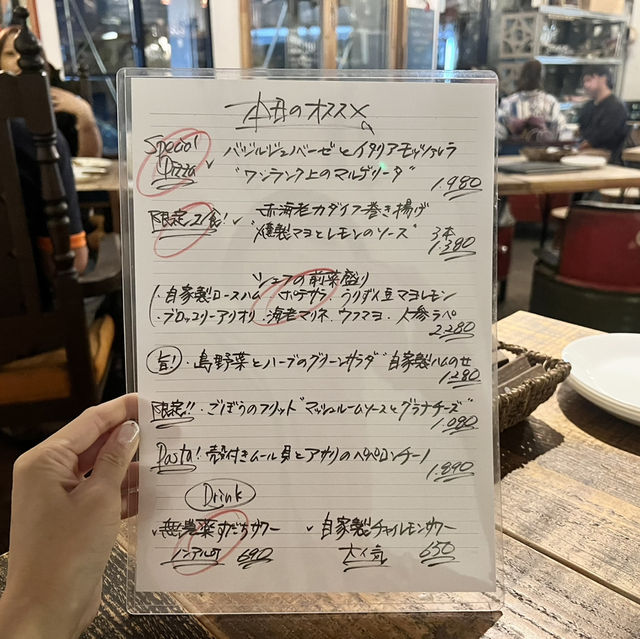 本日のオススメ
Specol バジルジェノベーゼとイタリアモッツァレラ
Pizza "ワンランク上のマルゲリータ" 1.980
限定22食! 赤海老カダイフ巻き揚げ
"燻製マヨとレモンのソース" 3本 1.380
シェフの前菜盛り
・自家製ロースハム ・ポテサラ ・うりずん豆マヨレモン
・ブロッコリーアリオリ ・海老マリネ ・ウフマヨ ・人参ラペ
2.280
旨! ・島野菜とハーブのグリーンサラダ" 自家製ハムのせ
1.280
限定!! ・ごぼうのフリット "マッシュルームソースとグラナチーズ"
1.090
Pasta! 殻付きムール貝とアサリのペペロンチーノ
1.890
Drink
無農薬すだちサワー 自家製チャイレモンサワー
ノンアルOK 690 大人気 650